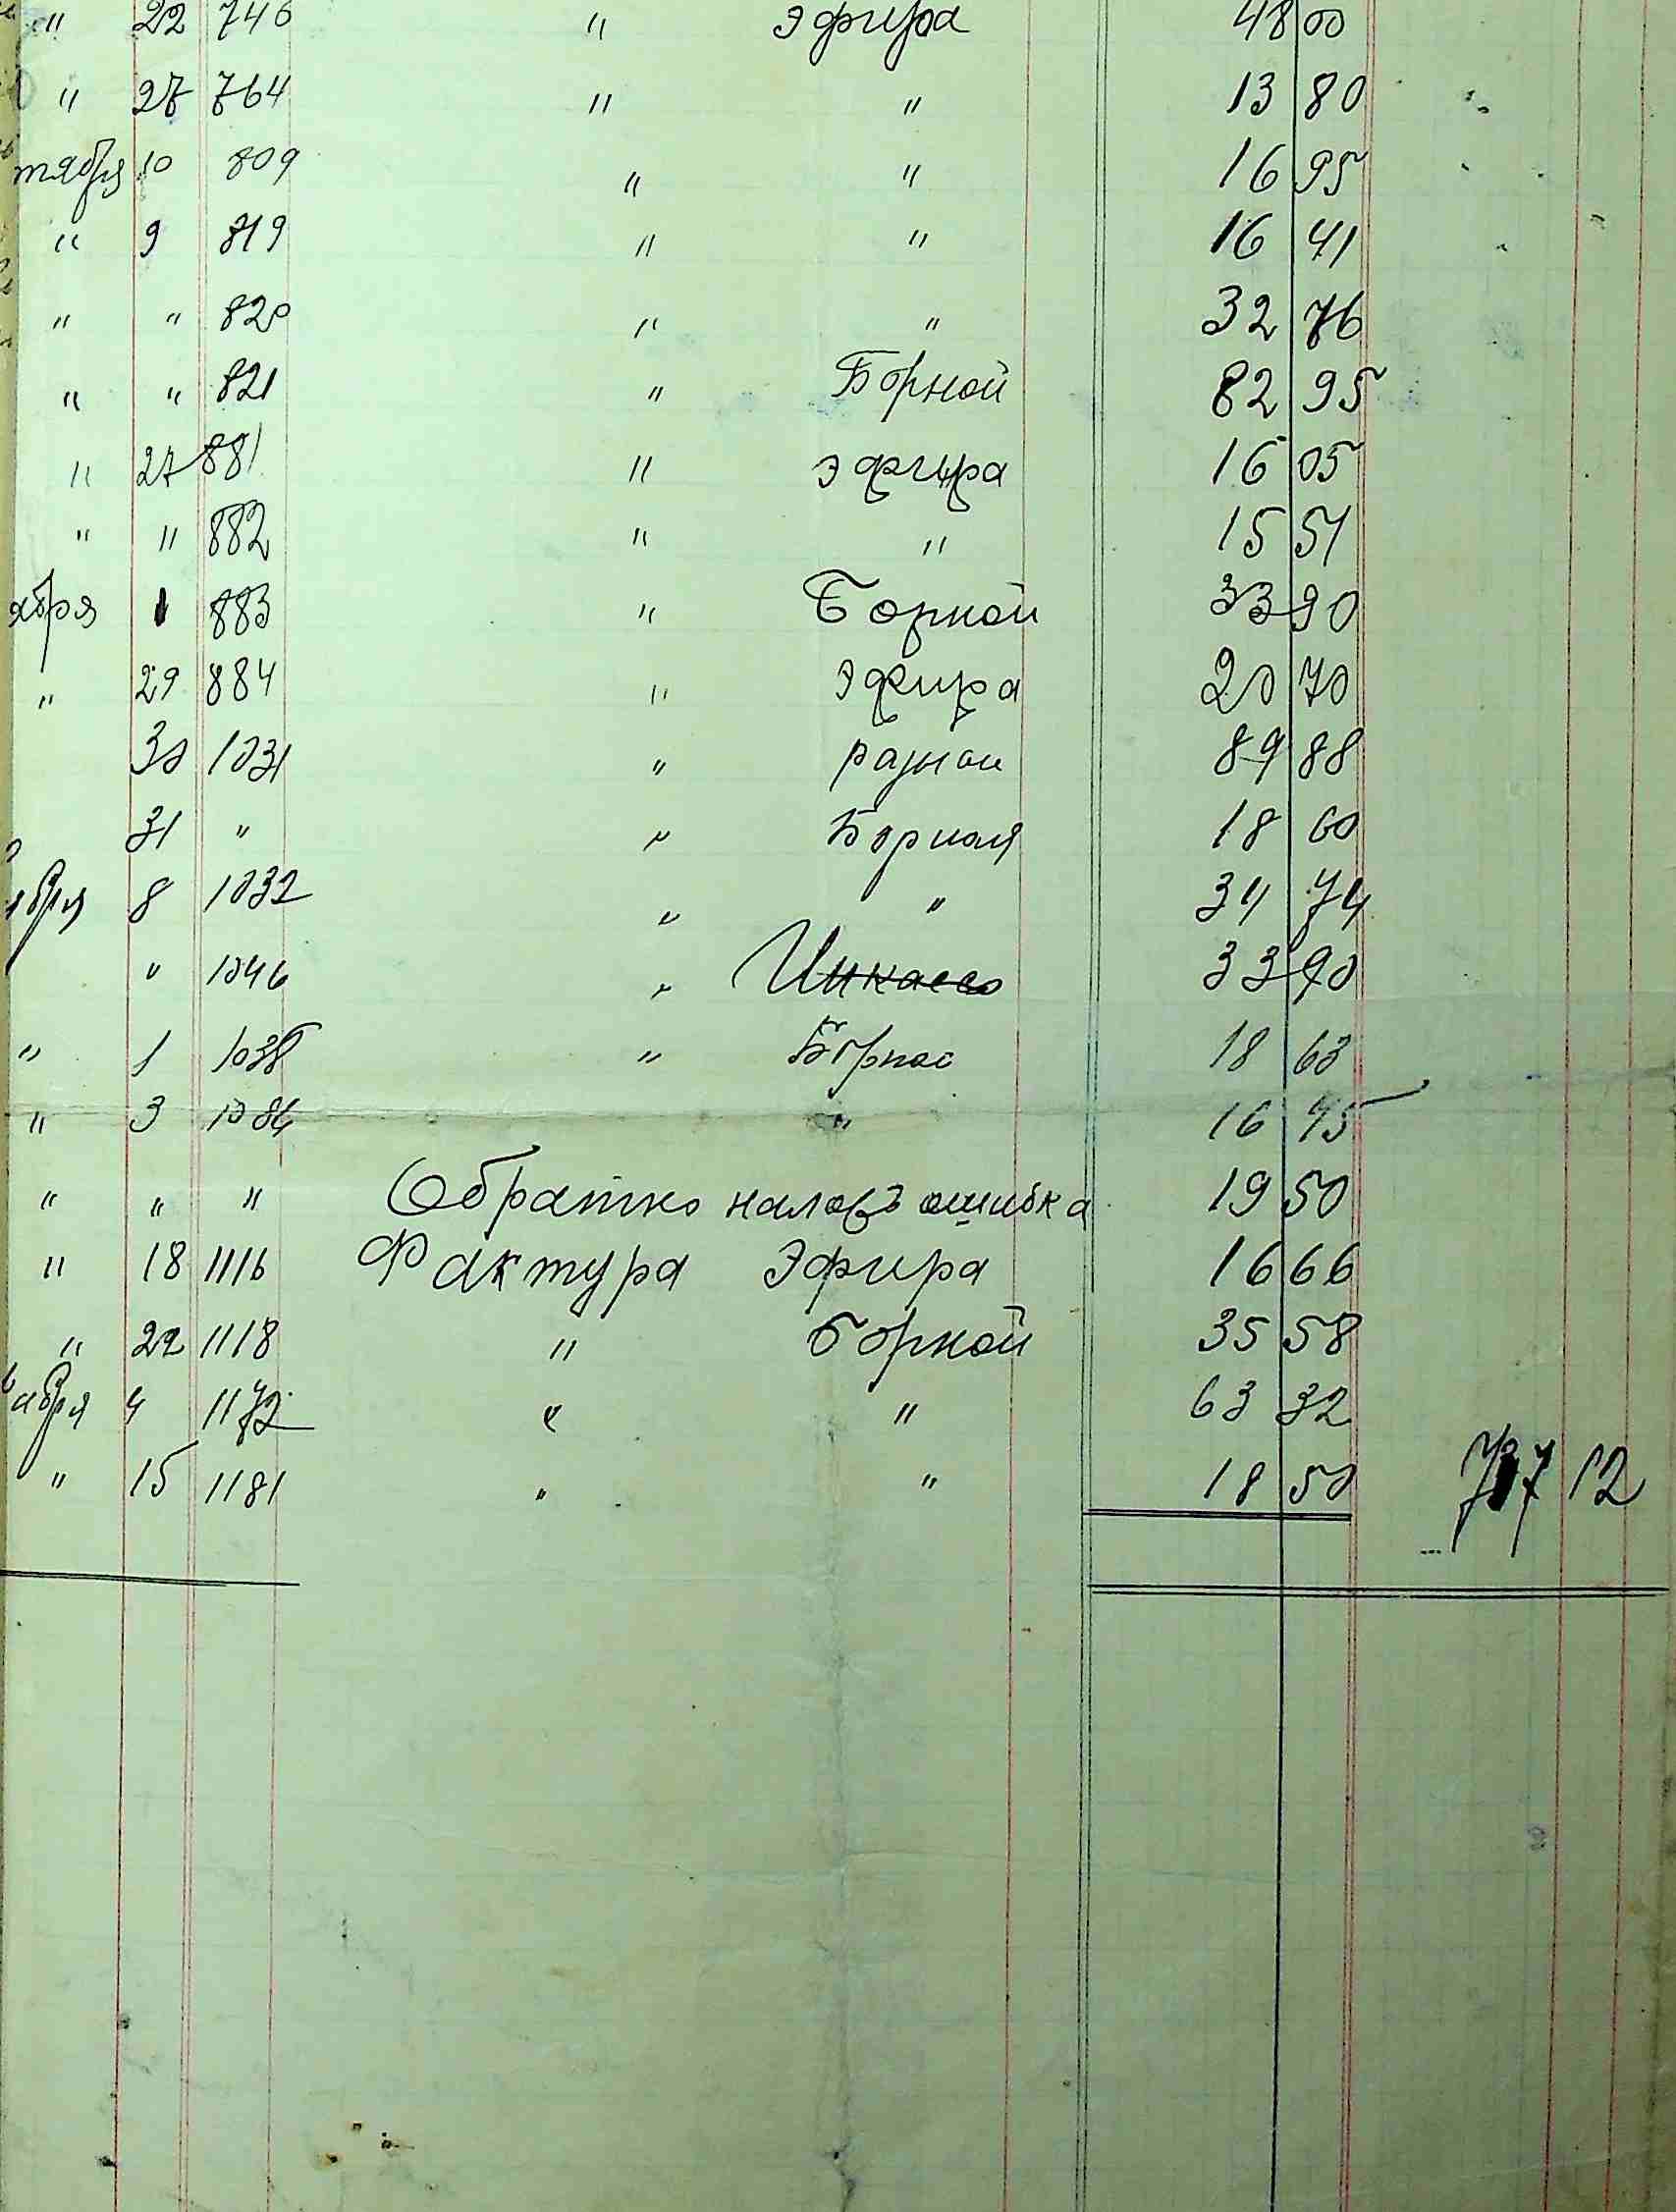 " 22 746 " эфира 48 00
" 27 764 " " 13 80
тября 10 809 " " 16 95
" 9 819 " " 16 41
" " 820 " " 32 76
" " 821 " Борной 82 95
" 27 881 " эфира 16 05
" " 882 " " 15 51
ября 1 883 " Борной 33 90
" 29 884 " эфира 20 70
30 1031 " разной 89 88
31 " " Борная 18 60
ября 8 1032 " " 34 74
" 1046 " Инкассо 33 90
" 1 1038 " Борной 18 63
" 3 1086 " 16 45
" " " Обратно налож ошибка 19 50
" 18 1116 Фактура Эфира 16 66
" 22 1118 " Борной 35 58
абря 4 1172 " " 63 32
" 15 1181 " " 18 50 737 12